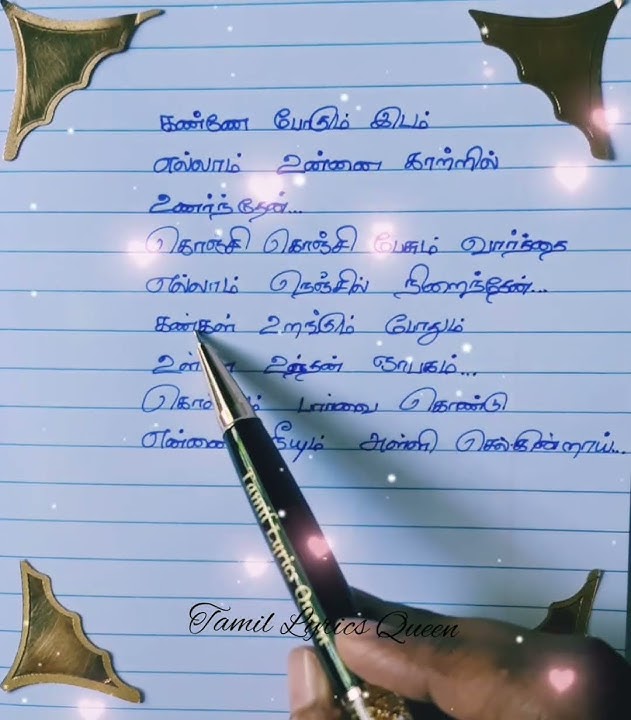 கண்ணே போகும் இடம்
எல்லாம் உன்னை காற்றில்
உணர்ந்தேன்...
கொஞ்சி கொஞ்சி பேசும் வார்த்தை
எல்லாம் நெஞ்சில் நிறைந்தேன்...
கண்கள் உறங்கும் போதும்
உந்தன் ஞாபகம்...
பார்வை கொண்டு
என்னை நீயும் அள்ளி செல்கின்றாய்...
Tamil Lyrics
Tamil Lyrics Queen